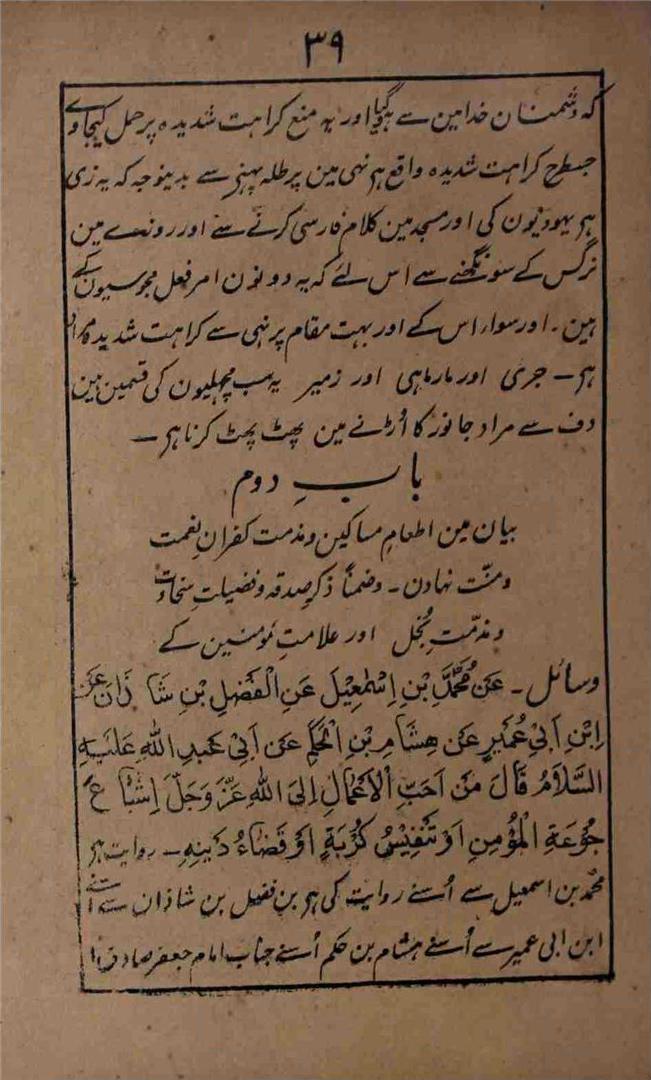 ۳۹
کہ دشمنان خدا مین سے ہوگیا اور یہ منع کراہت شدیدہ پر حمل کیجاوے
جسطرح کراہت شدیدہ واقع ہر نہی مین پر طلہ پہننے سے بدینوجہ کہ یہ زی
ہر یہودیون کی اور مسجد مین کلام فارسی کرنے سے اور روزے مین
نرگس کے سونگھنے سے اس لئے کہ یہ دونون امر فعل مجوسیون کے
ہین۔ اور سواے اس کے اور بہت مقام پر نہی سے کراہت شدیدہ مراد
ہر۔ جری اور مارماہی اور زمیر یہ سب مچھلیون کی قسمین ہین
دف سے مراد جانور کا اُڑنے مین پھٹ پھٹ کرنا ہر۔
بابِ دوم
بیان مین اطعامِ مساکین و مذمت کفرانِ نعمت
و منّت نہادن۔ و ضمناً ذکرِ صدقہ و فضیلتِ سخاوت
و مذمّتِ بُخل اور علامتِ مؤمنین کے
وسائل۔ عَنْ مُحَمَّدِ بْنِ اِسْمٰعِیْلَ عَنِ الْفَضْلِ بْنِ شَاذَانَ عَنْ
اِبْنِ اَبِیْ عُمَیْرٍ عَنْ هِشَامِ بْنِ الْحَکَمِ عَنْ اَبِیْ عَبْدِ اللّٰهِ عَلَیْهِ
السَّلَامُ قَالَ مِنْ اَحَبِّ الْاَعْمَالِ اِلَی اللّٰهِ عَزَّ وَجَلَّ اِشْبَاعُ
جُوْعَةِ الْمُؤْمِنِ اَوْ تَنْفِیْسُ کُرْبَةٍ اَوْ قَضَاءُ دَیْنِهِ۔ روایت ہر
محمد بن اسمعیل سے اُسنے روایت کی ہر بن فضل بن شاذان سے اُسنے
ابن ابی عمیر سے اُسنے ہشام بن حکم اُسنے جناب امام جعفر صادق